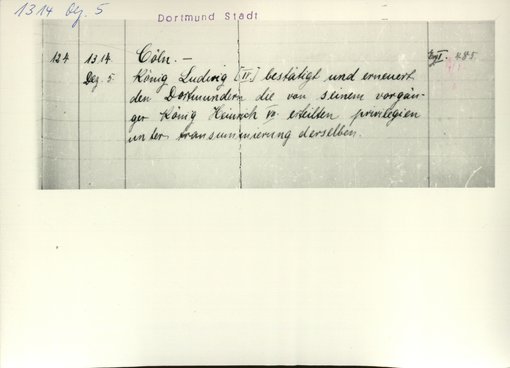 1314 Dez. 5
Dortmund Stadt
124 1314 Dez. 5.
Cöln. —
König Ludwig [IV.] bestätigt und erneuert
den Dortmundern die von seinem vorgän-
ger König Heinrich VII. erteilten privilegien
unter transsummierung derselben.
485